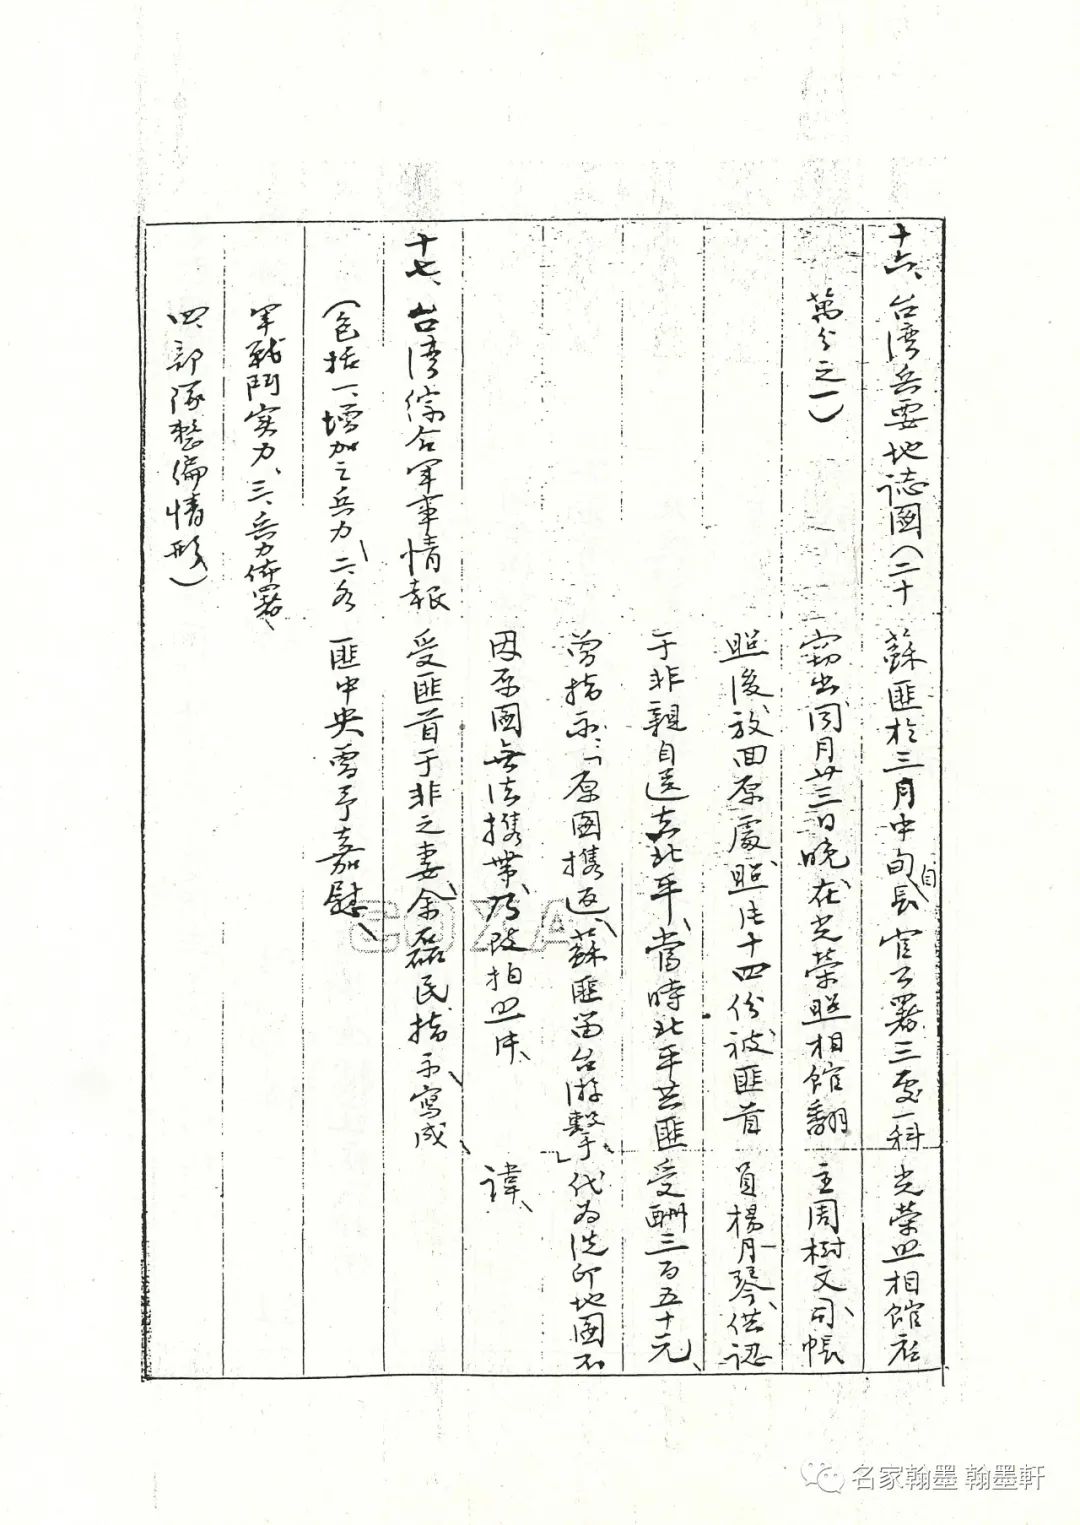 十六、台湾兵要地誌図（二十 蘇匪於三月中旬自長官公署三處一科 光榮照相館店
萬分之一） 竊出同月廿三日晚、在光榮照相館翻 主周樹文、司帳
照後放回原處照片十四份被匪首 員楊月琴、供認
于非親自送去北平、當時北平共匪 受酬三百五十元、
曾指示：「原図携返、蘇匪留台游擊」、 代为洗印地図不
因原図無法携帶乃改拍照片、 諱、
十七、台湾综合军事情報 受匪首于非之妻、余磊民指示寫成、
（包括一、增加之兵力、二、各 匪中央曾予嘉慰、
军戰鬥实力、三、兵力佈署、
四、部隊整编情形）
COZA
名家翰墨 翰墨軒